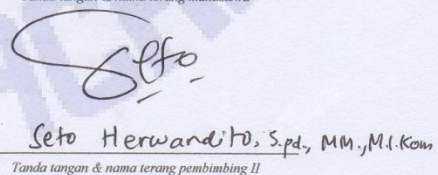 Tanda tangan & nama terang mahasiswa
Seto
Seto Herwandito, S.pd., MM., M.I.Kom
Tanda tangan & nama terang pembimbing II